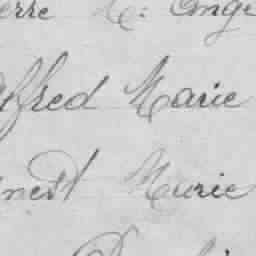 erre M: Ange
lfred Marie
nest Marie